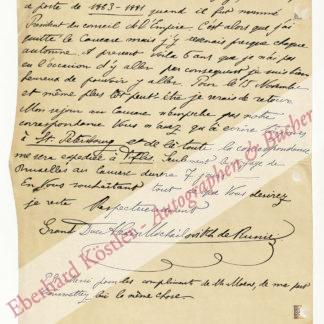 a poste de 1863-1881 quand il est nommé
Président du conseil de l'Empire. C'est alors que j'ai
quitté le Caucase mais j'y revenais presque chaque
automne. A present voila 6 ans que je n'ai pas
eu l'occasion d'y aller par consequent je suis bien
heureux de pouvoir y aller. Pour le 15 Novembre
et même plus tôt peut-être je serais de retour.
Mon sejour au Caucase n'empeche pas notre
correspondance. Vous n'avez qu'a écrire toujours
à St. Petersbourg et de là toute la correspondance
me sera expediée à Tiflis. Seulement le voyage de
Bruxelles au Caucase durera 7 jours
En Vous souhaitant tout ce que Vous desirez
je reste Respectueusement
Grand Duc Nicolas Mikhailovitch de Russie
pour les compliments de Mr Maens de ma part
transmettez lui le même chose.
Eberhard Köstler - Autographen & Bücher